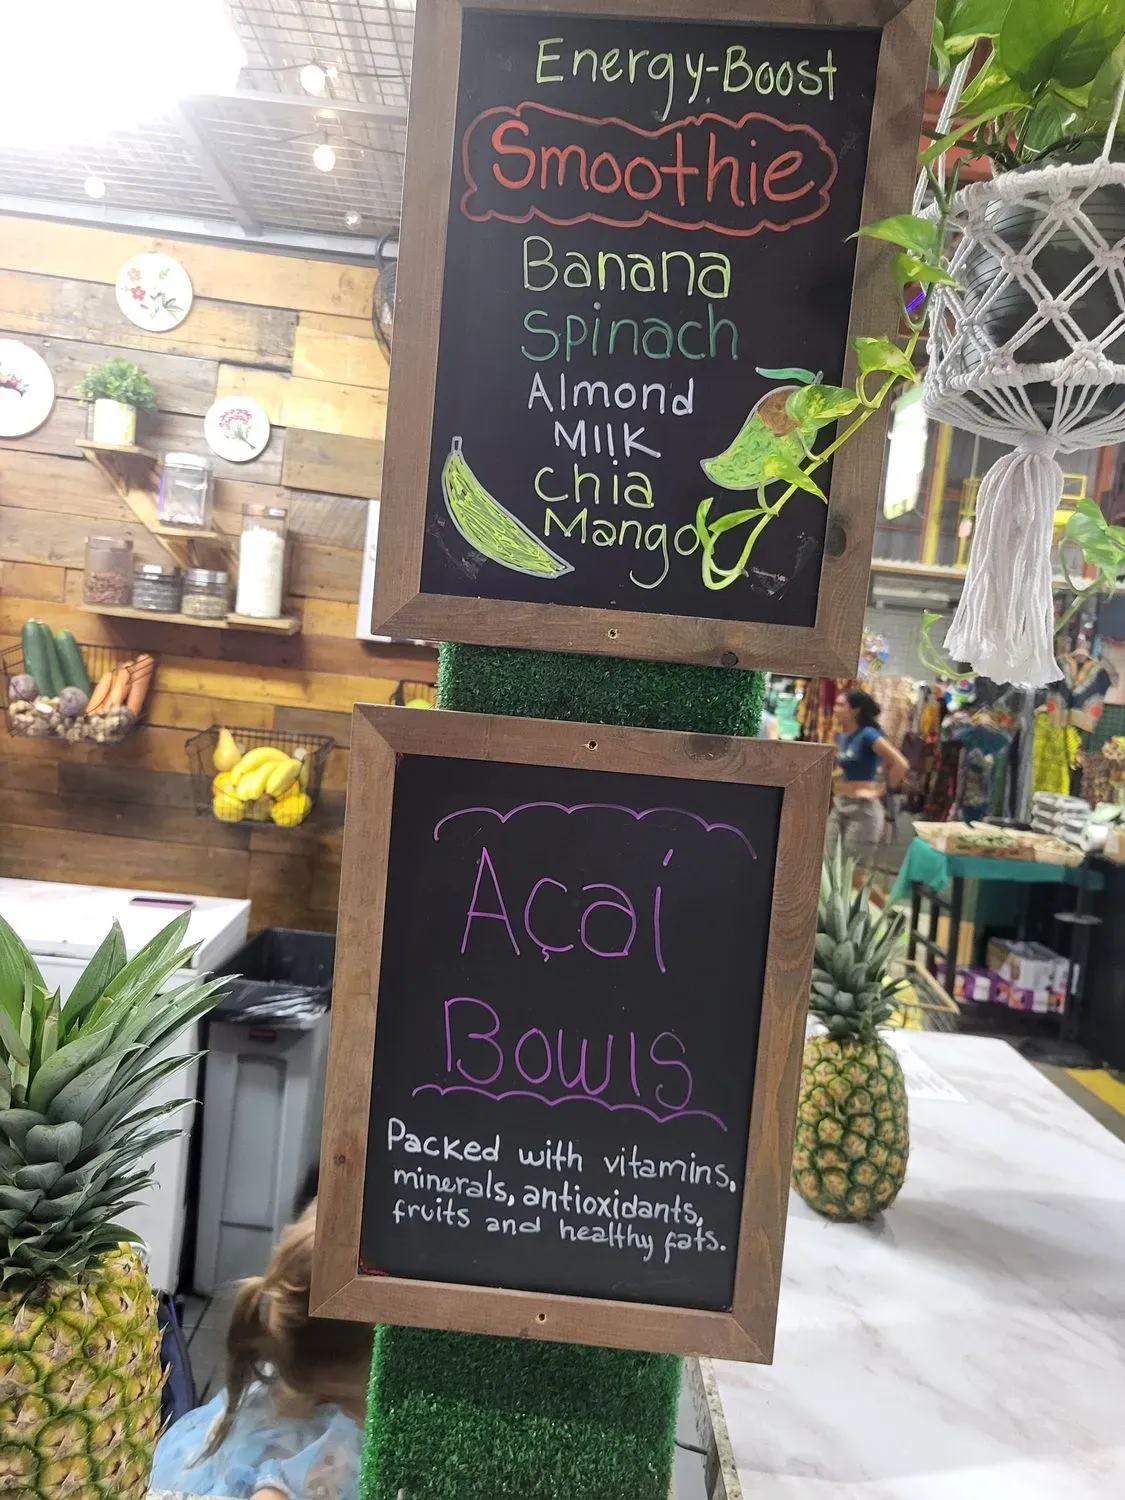 Energy-Boost
Smoothie
Banana
Spinach
Almond
Milk
Chia
Mango
Açaí
Bowls
Packed with vitamins,
minerals, antioxidants,
fruits and healthy fats.